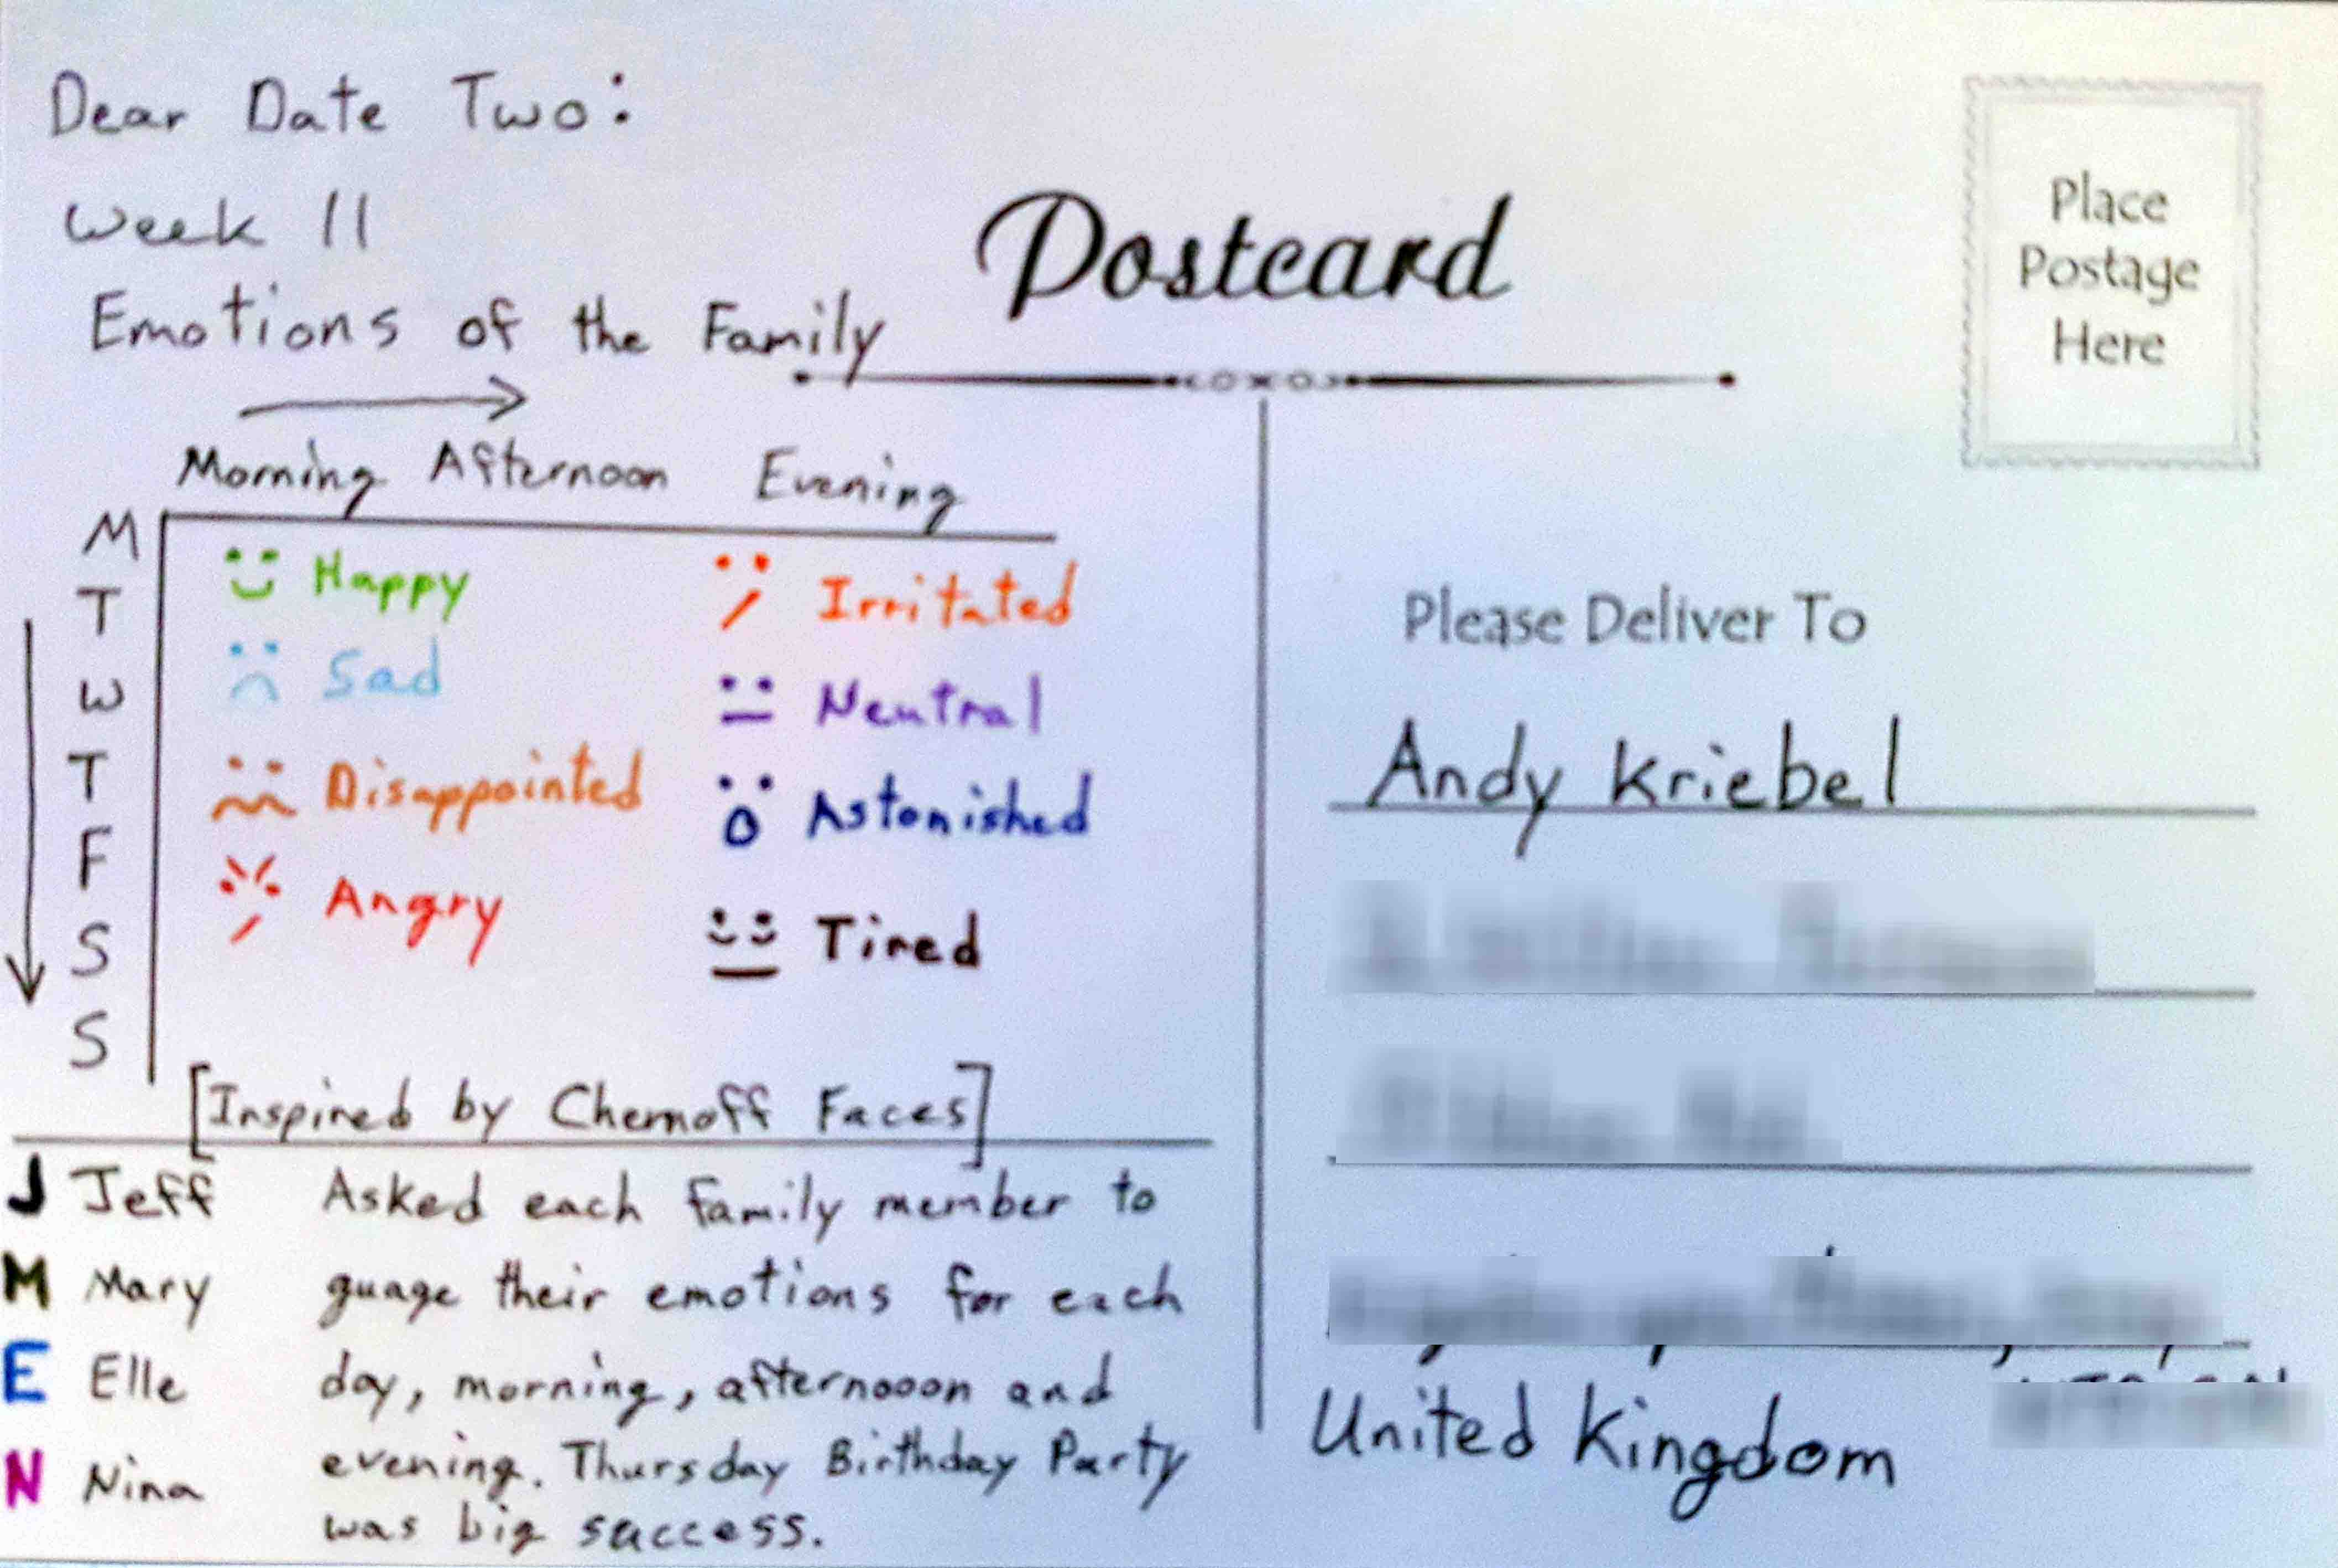 Dear Date Two:
Week 11
Emotions of the Family
Morning Afternoon Evening
M
T
W
T
F
S
S
Happy
Sad
Disappointed
Angry
Irritated
Neutral
Astonished
Tired
[Inspired by Chernoff Faces]
J Jeff
M Mary
E Elle
N Nina
Asked each family member to
guage their emotions for each
day, morning, afternooon and
evening. Thursday Birthday Party
was big success.
Postcard
Place
Postage
Here
Please Deliver To
Andy Kriebel
United Kingdom